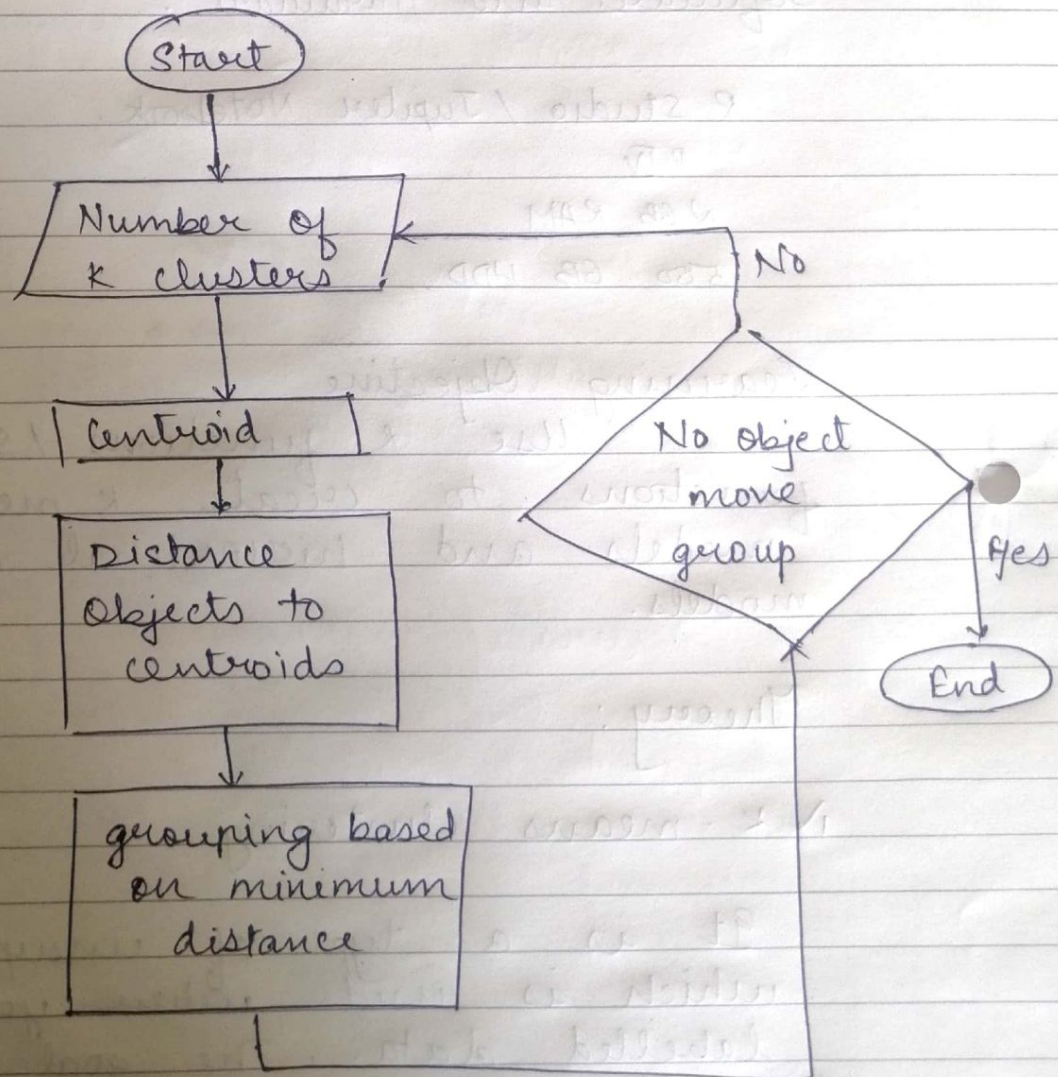 Start
Number of
K clusters
Centroid
Distance
Objects to
centroids
grouping based
on minimum
distance
No object
move
group
No
Yes
End